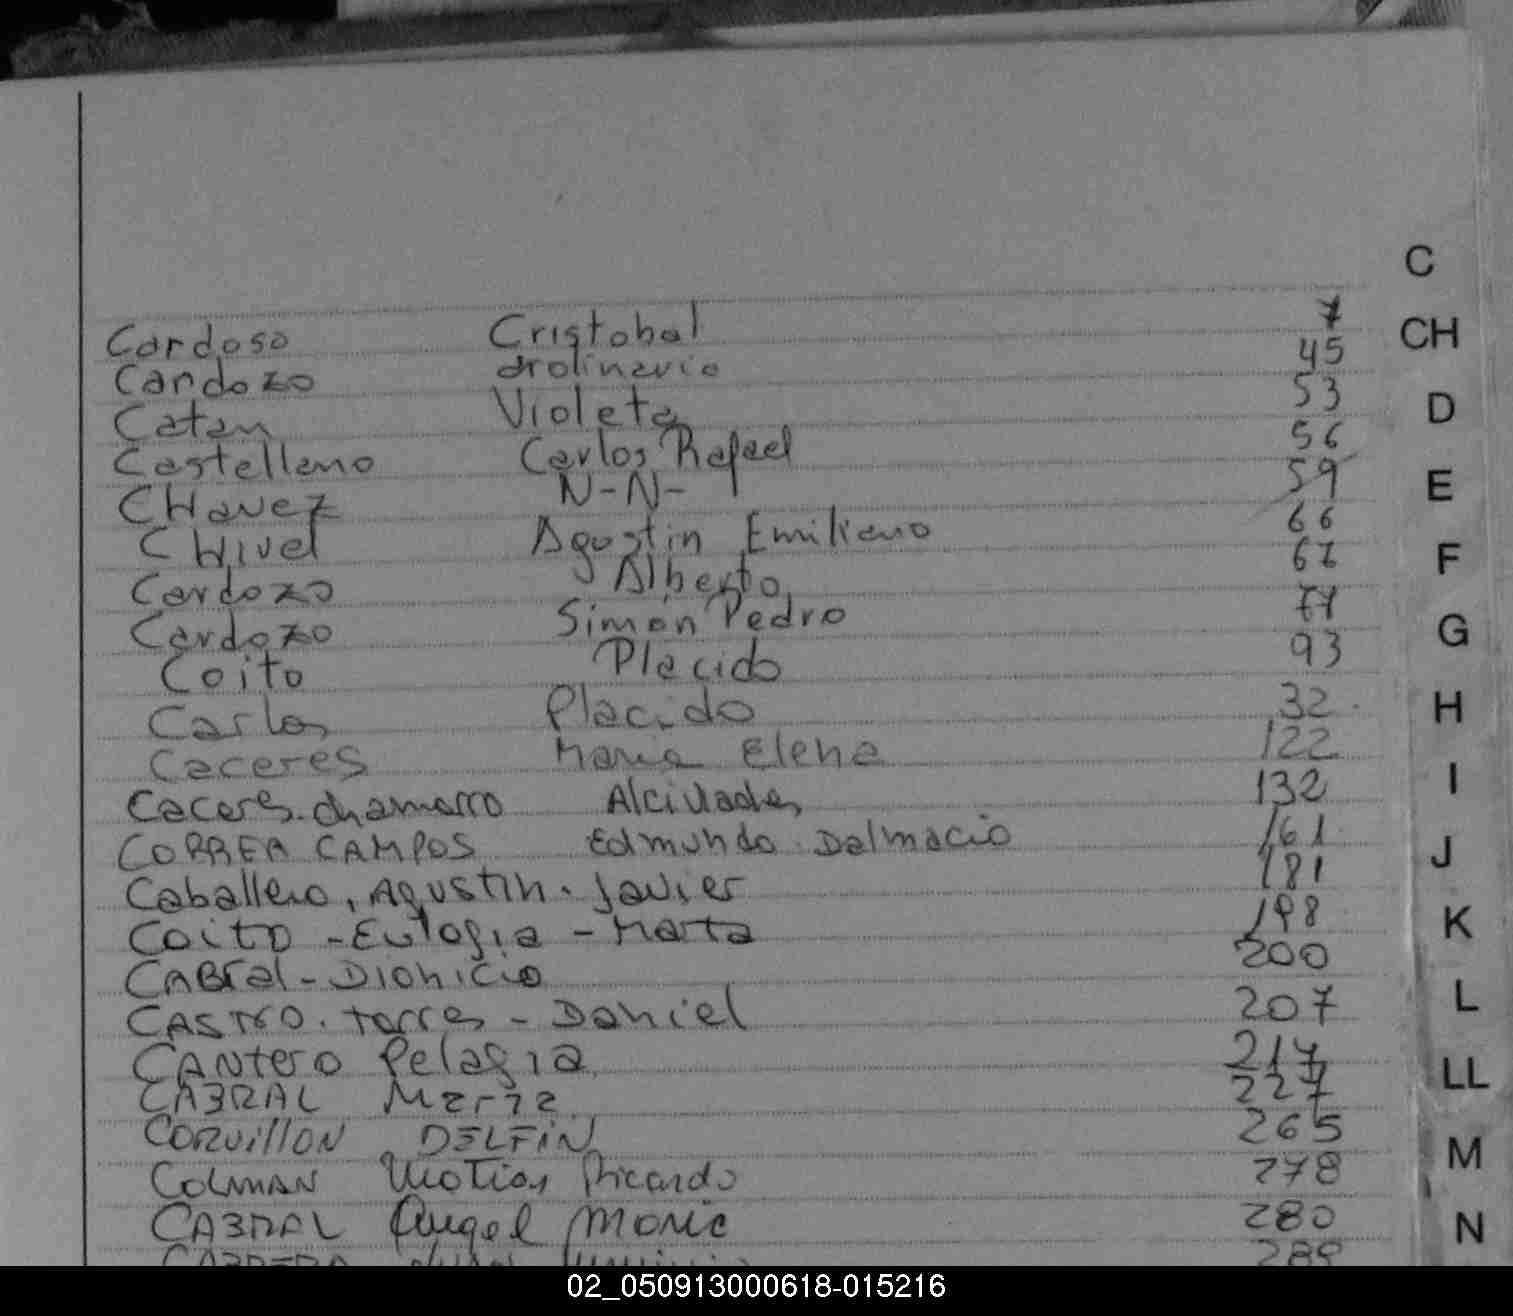 C
Cardoso Cristobal 7
CH
Cardozo 45
Catan Violeta 53
D
Castellano Carlos Rafael 56
CHavez N-N- 59
E
CHivel Agustin Emiliano 66
Cardozo Alberto 67
F
Cardozo Simón Pedro 77
G
Coito Placido 93
Carlos Placido 32
H
Caceres Maria Elena 122
I
Caceres.chamorro Alcivades 132
CORREA CAMPOS Edmundo Dalmacio 161
J
Caballero, Agustin. Javier 181
Coito - Eulogia - Marta 198
K
CABral - Dionicio 200
CASTRO. torres - Daniel 207
L
CANtero Pelagia 217
CABRAL Maria 227
LL
CORVillON DELFIN 265
M
COLMAN Matias Ricardo 278
CABRAL Angel Maria 280
N
CABRERA 289
02_050913000618-015216